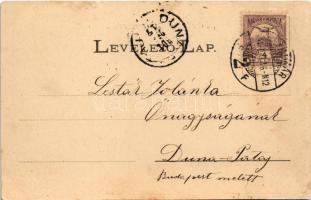 DUNA
LEVELEZŐ-LAP.
Lestár Jolánka
Őnagyságának
Duna-Pataj
Budapest mellett